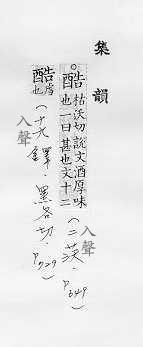 集韻
酷枯沃切說文酒厚味
也一曰甚也文十二
入聲
(二沃.P649)
酷虐
也
入聲
(十九鐸.黑各切.P729)